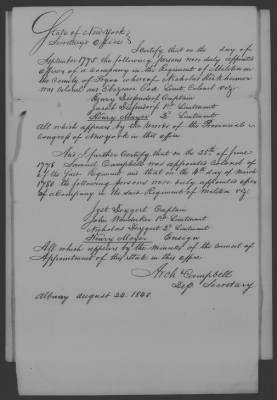 State of New York
Secretary's Office
I certify that on the day of
September 1775 the following persons were duly appointed
officers of a Company in the Regiment of Militia in
the County of Tryon whereof Nicholas Herkheimer
was Colonel and Ebenezer Cox Lieut Colonel viz
Henry Diefendorf Captain
Jacob Diefendorf 1st Lieutenant
Henry Mayer 2d Lieutenant
All which appears by the of the Provincial
Congress of New York in this office
And I further Certify that on the 25th of June
1778 Samuel Campbell was appointed Colonel of
Regiment and that on the 4th day of March
1780 the following persons were duly appointed officers
of a Company in the said Regiment of Militia viz
Jost Dygert Captain
John 1st Lieutenant
Nicholas Dygert 2d Lieutenant
Henry Moyer Ensign
All which appears by the minutes of the Council of
Appointment of this State in this office
Arch Campbell
Dep Secretary
Albany August 24. 1840